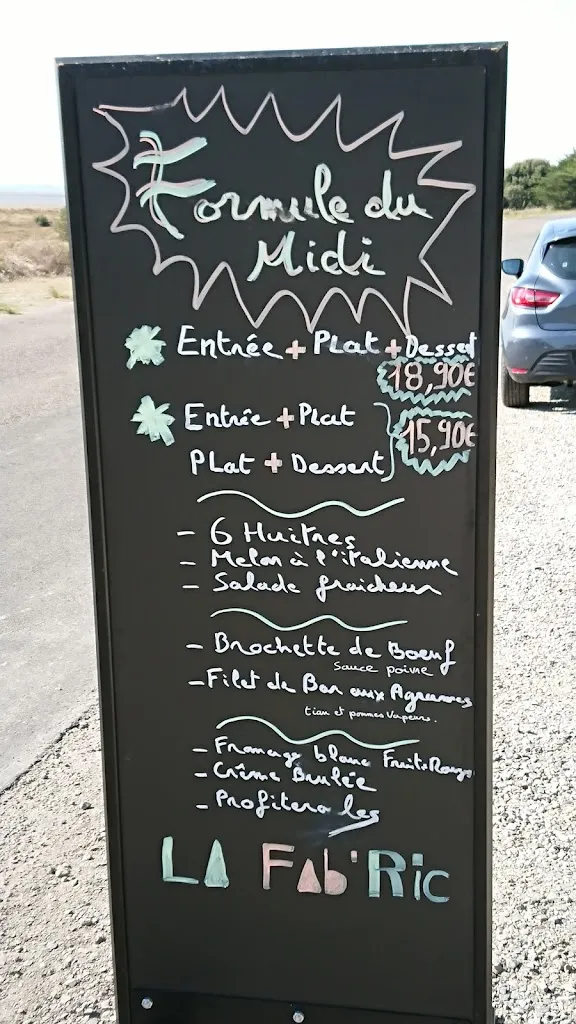 Formule du
Midi
Entrée + Plat + Dessert
18,90€
Entrée + Plat
15,90€
Plat + Dessert
- 6 Huitres
- Melon à l'italienne
- Salade fraicheur
- Brochette de Boeuf
sauce poivre
- Filet de Bar aux Agrumes
tian et pommes Vapeurs.
- Fromage blanc Fruits Rouges
- Crème Brulée
- Profiteroles
LA FAb'Ric